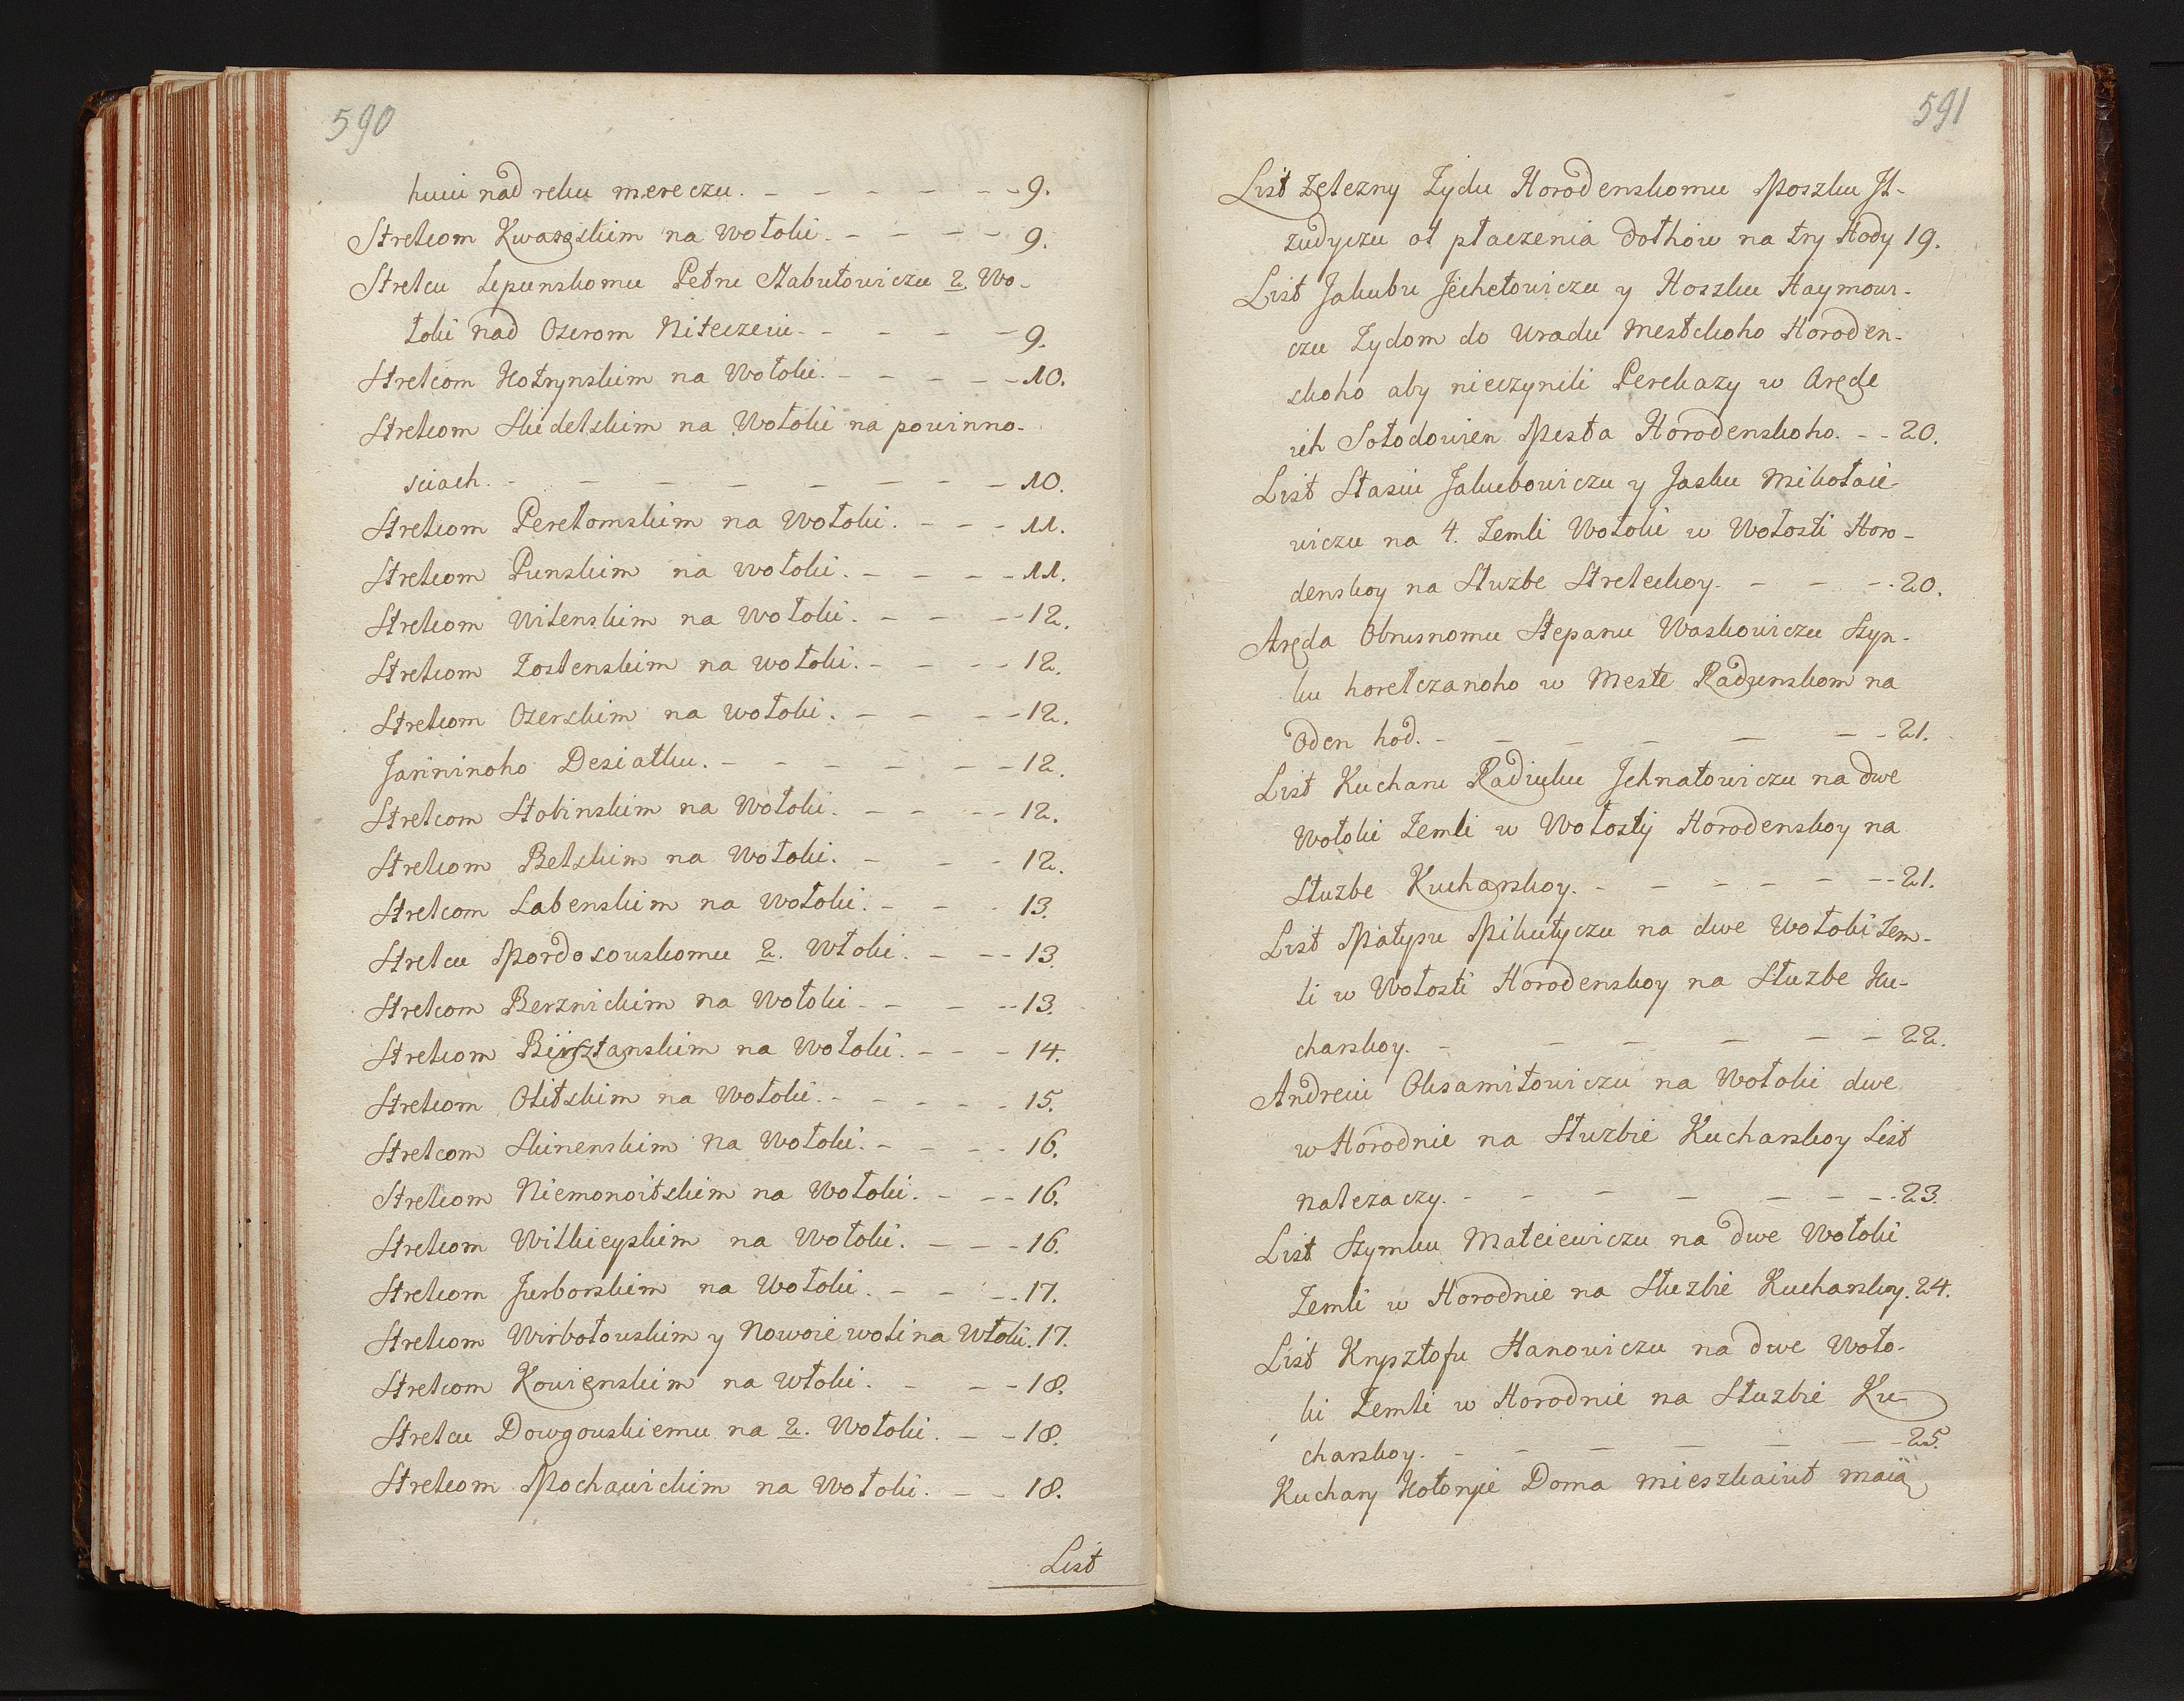 590
huiu nad reku mereczu. - - - - - - 9.
Strelcom Kwasskim na Wołoki. - - - - 9.
Strelcu Lepunskomu Petru Stabutowiczu 2. Wo-
łoki nad Ozerom Niteczeiu. - - - - 9.
Strelcom Kotrynskim na Wołoki. - - - - - 10.
Strelcom Skidelskim na Wołoki na powinno-
sciach. - - - - - - - - 10.
Strelcom Perełomskim na Wołoki. - - - 11.
Strelcom Punskim na wołoki. - - - - 11.
Strelcom Wilenskim na Wołoki. - - - - 12.
Strelcom Zoslenskim na wołoki. - - - - 12.
Strelcom Ozerskim na wołoki. - - - - 12.
Janninoho Desiatku. - - - - - - - 12.
Strelcom Stobinskim na Wołoki. - - - - 12.
Strelcom Belskim na Wołoki. - - - 12.
Strelcom Labenskim na Wołoki. - - - 13.
Strelcu Mordosouskomu 2. Włoki. - - - 13.
Strelcom Berznickim na Wołoki - - - - 13.
Strelcom Birsztanskim na Wołoki. - - - 14.
Strelcom Olitskim na Wołoki. - - - - - 15.
Strelcom Skinenskim na Wołoki. - - - - 16.
Strelcom Niemonoitskim na Wołoki. - - - 16.
Strelcom Wilkieyskim na Wołoki. - - - 16.
Strelcom Jurborskim na Wołoki. - - - - 17.
Strelcom Wirbołouskim y Nowoie woli na Włoki. 17.
Strelcom Kowienskim na włoki. - - - 18.
Strelcu Dowgouskiemu na 2. Wołoki. - - 18.
Strelcom Mochawickim na Wołoki. - - 18.
List
591
List Zelezny Zydu Horodenskomu Moszku It-
zudyczu ot płaczenia dołhow na try Hody 19.
List Jakubu Jechelowiczu y Hoszku Haymowi-
czu Zydom do Uradu Mestckoho Horoden-
skoho aby nieczynili Perekazy w Arędе
ich Sołodowien Mesta Horodenskoho. - - 20.
List Stasiu Jakubowiczu y Jasku Mikołaie-
wiczu na 4. Zemli Wołoki w Wołosti Horo-
denskoy na Słuzbe Streleckoy. - - - - 20.
Aręda Obrusnomu Stepanu Waskowiczu Szyn-
ku horełczanoho w Meste Radunskom na
Oden hod. - - - - - - - 21.
List Kucharu Radiuku Ichnatowiczu na dwe
Wołoki Zemli w Wołostij Horodenskoy na
Słuzbe Kucharskoy. - - - - - - - 21.
List Małyru Mikutyczu na dwe Wołoki Zem-
li w Wołosti Horodenskoy na Słuzbe Ku-
charskoy. - - - - - - 22.
Andreiu Oksamitowiczu na Wołoki dwe
w Horodnie na Słuzbie Kucharskoy List
nalezaczy. - - - - - - - - 23.
List Szymku Mateiewiczu na dwe Wołoki
Zemli w Horodnie na Słuzbie Kucharskoy. 24.
List Krysztofu Stanowiczu na dwe Woło-
ki Zemli w Horodnie na Słuzbie Ku-
charskoy. - - - - - - - 25.
Kuchary Kotoryie Doma mieszkaiut maią